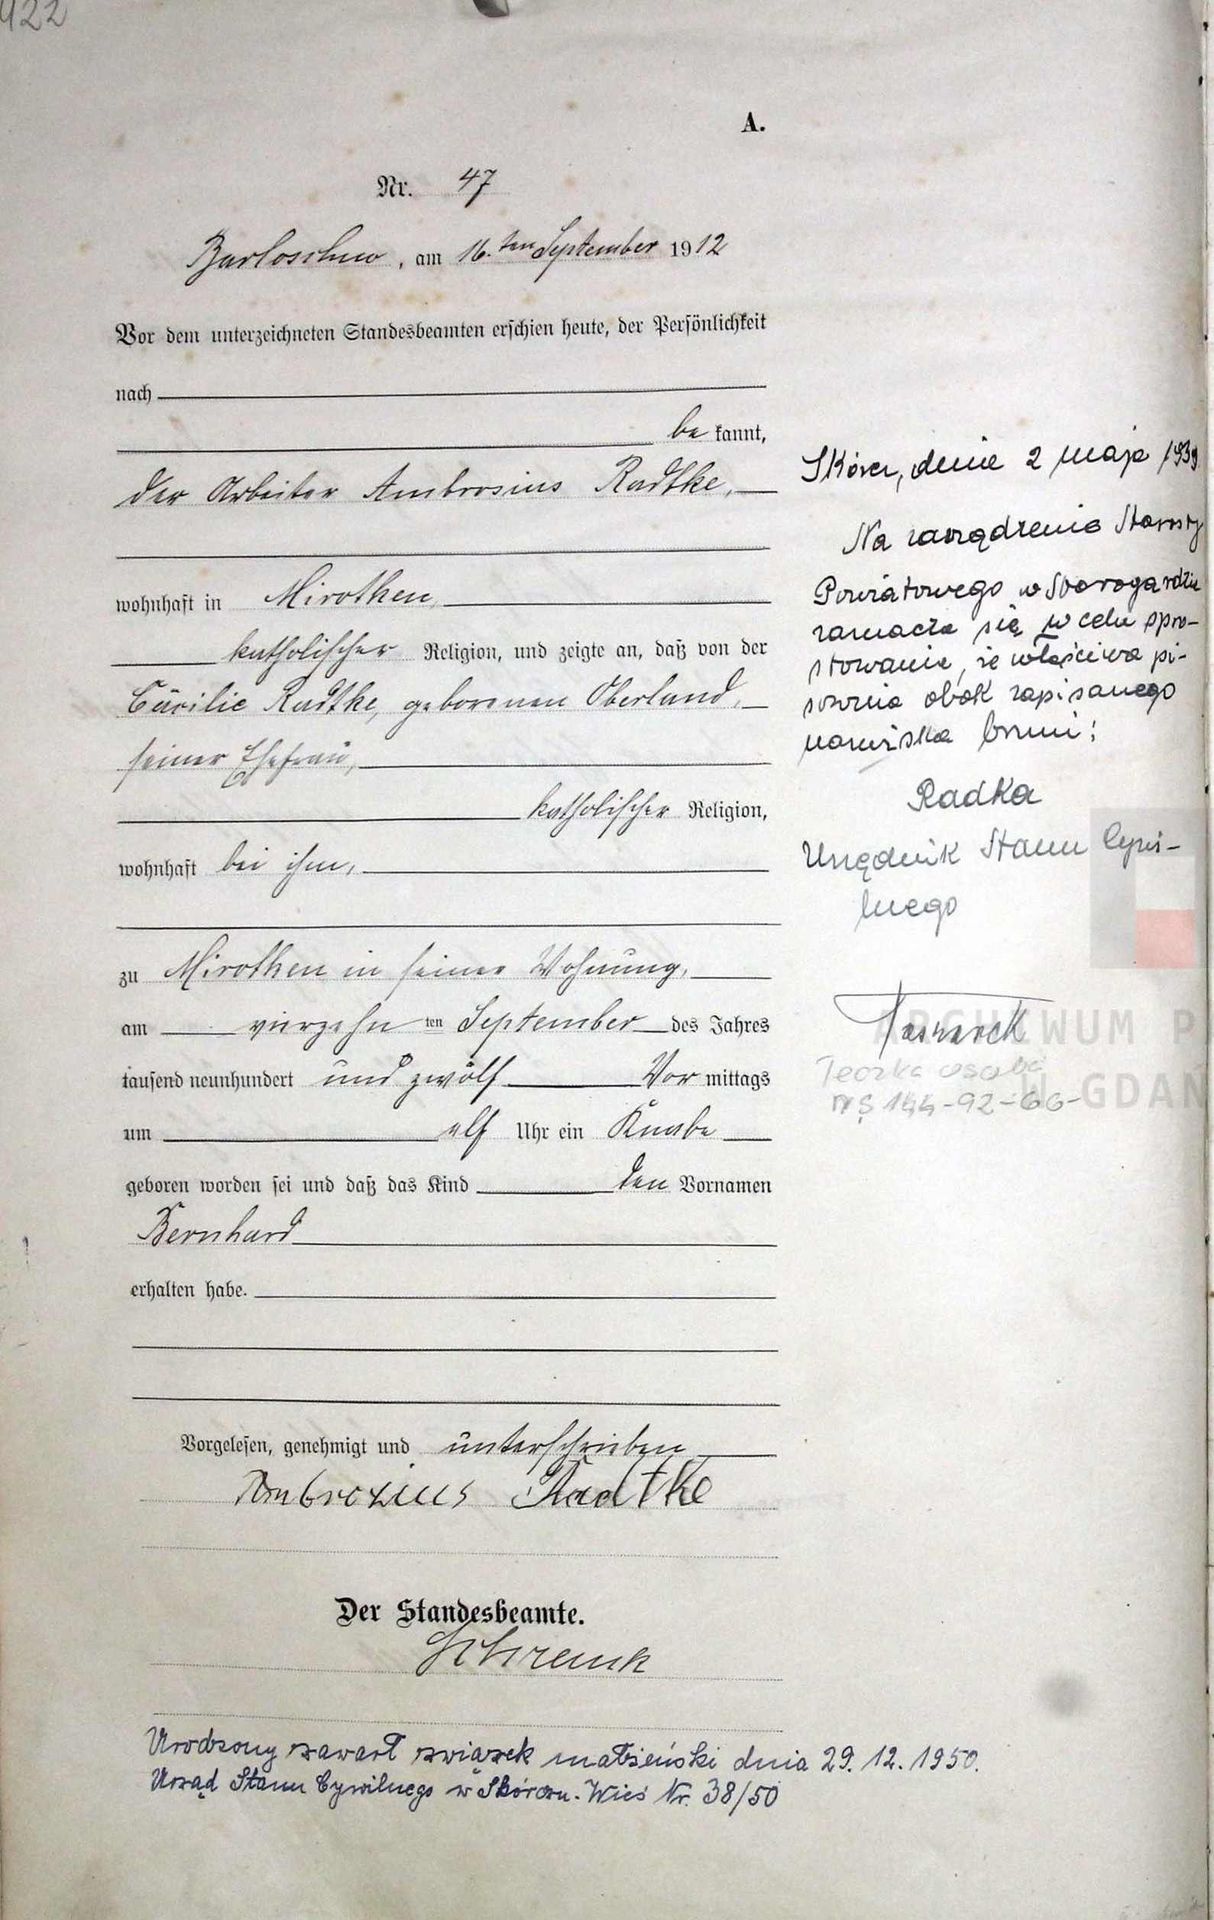 922
A.
Nr. 47
Barloschno, am 16.ten September 1912
Vor dem unterzeichneten Standesbeamten erschien heute, der Persönlichkeit
nach
be kannt,
der Arbeiter Ambrosius Radtke,
wohnhaft in Mirothen,
katholischer Religion, und zeigte an, daß von der
Cäcilie Radtke, geborenen Oberland,
seiner Ehefrau,
katholischer Religion,
wohnhaft bei ihm,
zu Mirothen in seiner Wohnung,
am vierzehn ten September des Jahres
tausend neunhundert und zwölf Vor mittags
um elf Uhr ein Knabe
geboren worden sei und daß das Kind den Vornamen
Bernhard
erhalten habe.
Vorgelesen, genehmigt und unterschrieben
Ambrozius Radtke
Der Standesbeamte.
Schrenk
Urodzony zawarł związek małżeński dnia 29.12.1950.
Urząd Stanu Cywilnego w Skórczu-Wieś Nr. 38/50
Skórcz, dnia 2 maja 1939
Na zarządzenie Starosty
Powiatowego w Starogardzie
zaznacza się w celu spro-
stowania, że właściwa pi-
sownia obok zapisanego
nazwiska brzmi:
Radka
Urzędnik Stanu Cywi-
lnego
Teczka osob.
144-92-66-
ARCHIWUM P
W GDAN